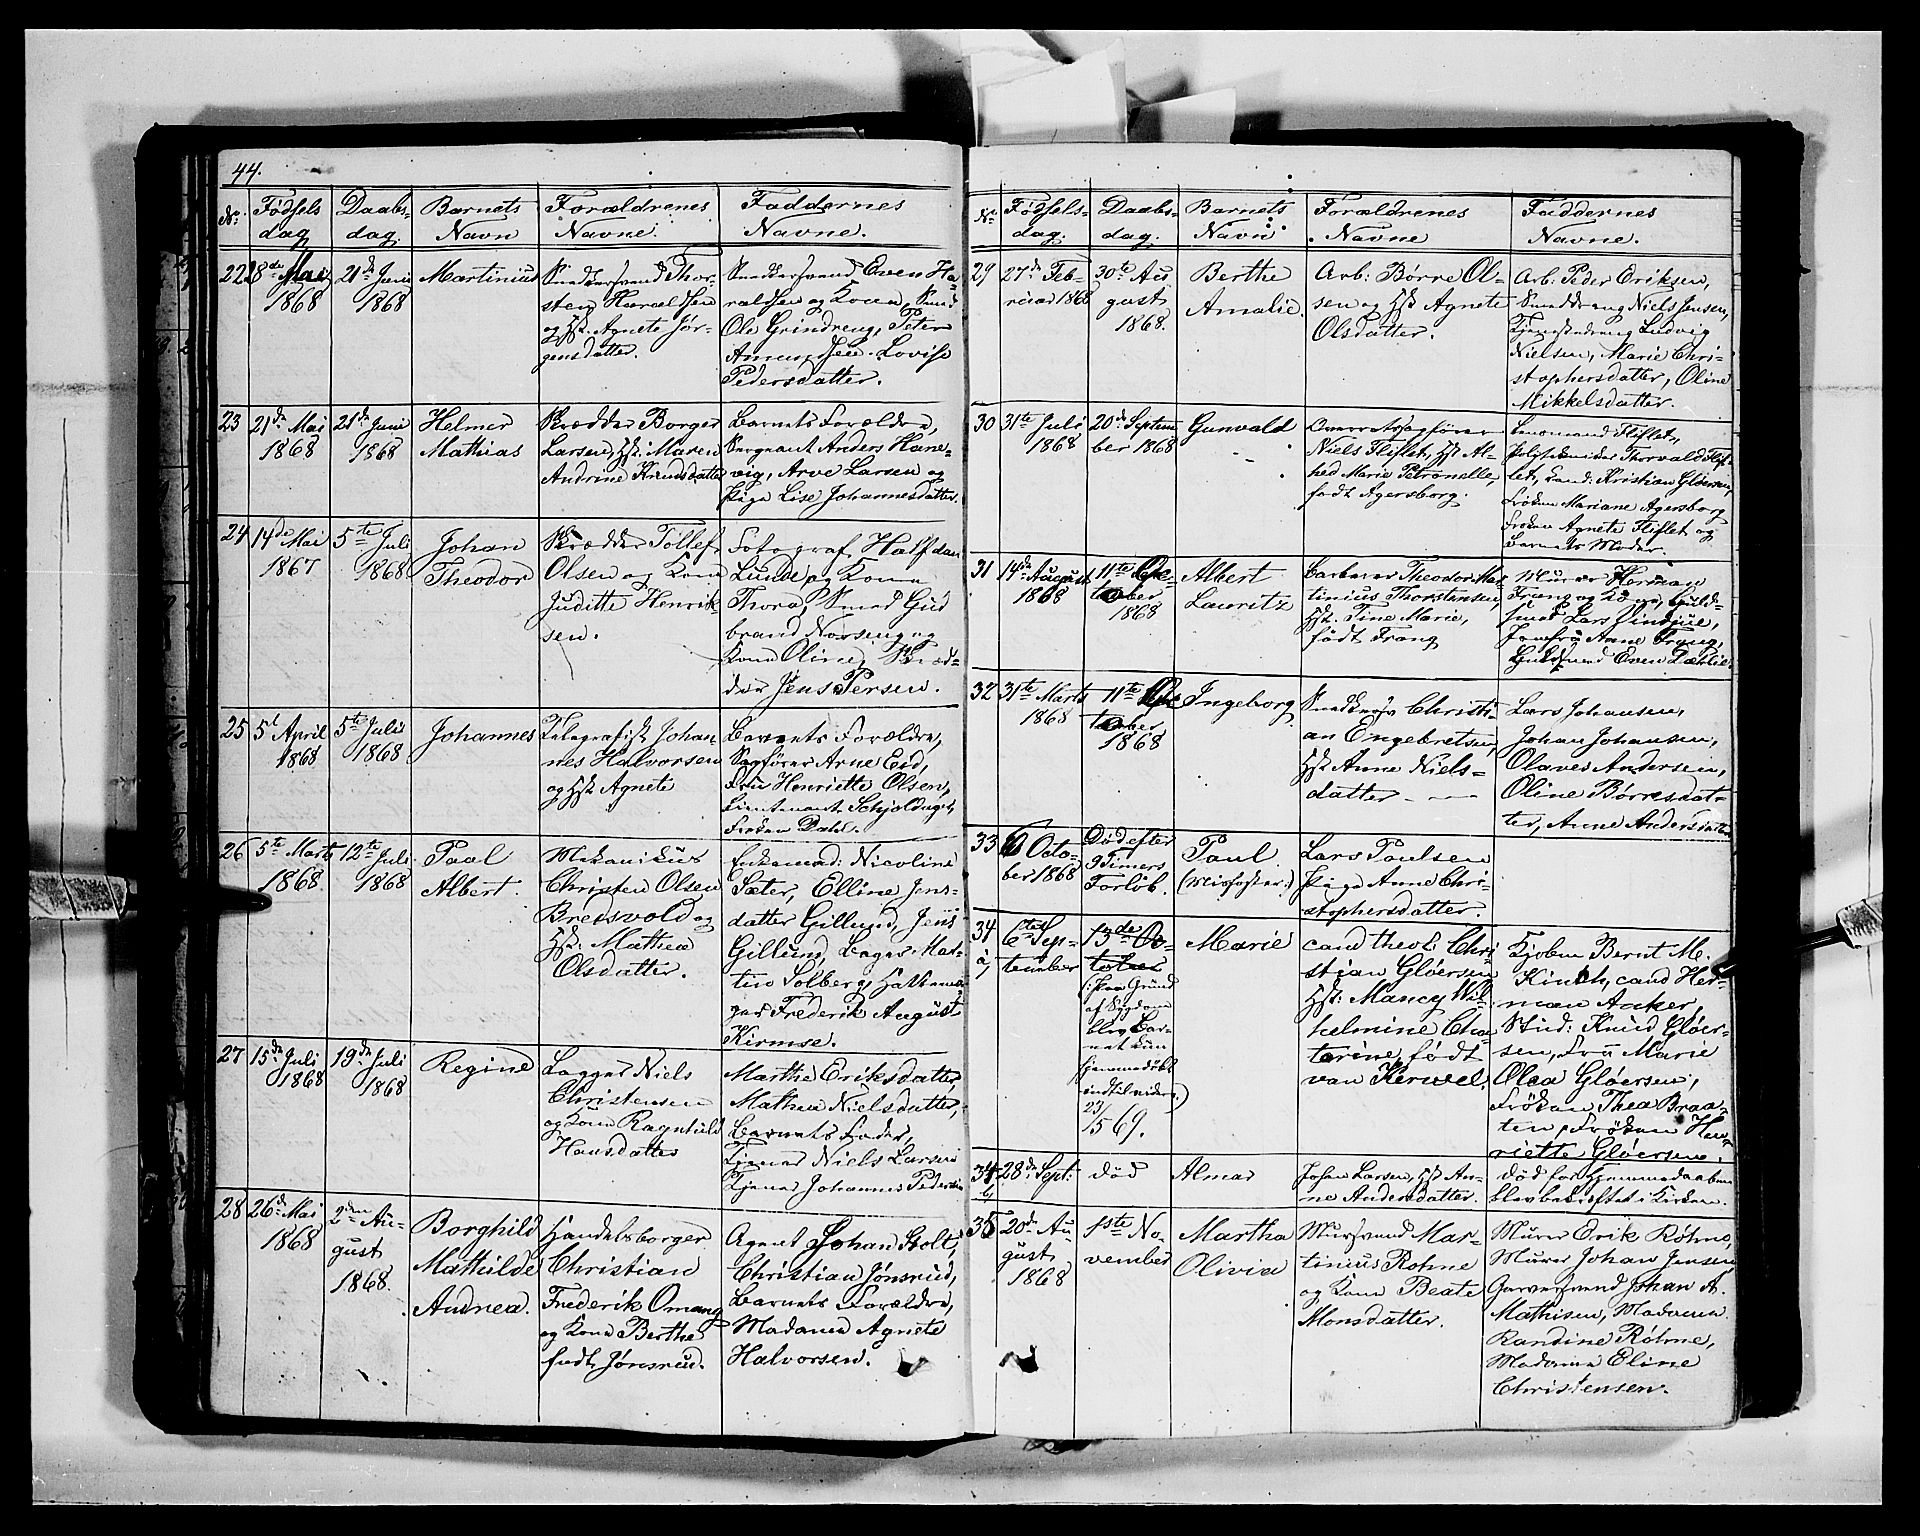 44.
No. Fødsels Daabs- Barnets Forældrenes Faddernes
dag dag. Navn Navne. Navne.
22 18de Mai
1868
21de Juni
1868
Martinius
Snedkersvend Thor-
sten Haraldsen
og Hst. Agnete Jør-
gensdatter.
Snedkersvend Even Ha-
raldsen og Kone, Smed
Ole Grindreng, Peter
Amundsen. Lovise
Pedersdatter.
23 21de Mai
1868
21de Juni
1868
Helmer
Mathias
Skrædder Borger
Larsen, Hst. Maren
Andrine Knudsdatter
Barnets Forældre,
Sergeant Anders Hane-
vig, Arve Larsen og
Pige Lise Johannesdatter.
24 14de Mai
1867
5te Juli
1868
Johan
Theodor
Skrædder Tollef
Olsen og Kone
Juditte Henrik
sen.
Fotograf Halfdan
Lunde og Kone
Thora, Smed Gud
brand Norseng og
Kone Oline, Skræd-
der Jens Persen.
25 5t April
1868
5te Juli
1868
Johannes
Telegrafist Johan-
nes Halvorsen
og Hst Agnete
Barnets Forældre,
Sagfører Arne Eid,
Fru Henriette Olsen,
Lieutenant Schjoldager,
Frøken Dahl.
26 5te Marts
1868.
12te Juli
1868
Paal
Albert.
Mekanikus
Christen Olsen
Bredsvold og
Hst: Mathea
Olsdatter.
Enkemad: Nicoline
Sæter, Elline Jens-
datter Gillund, Jens
Gillund, Bager Mar-
tin Solberg, Hattema-
ger Frederik August
Kirmse.
27 15de Juli
1868
19de Juli
1868
Regine
Lagger Niels
Christensen
og Kone Ragnhild
Hansdatter
Marthe Eriksdatter,
Mathea Nielsdatter,
Barnets Fader,
Tjener Niels Larsen
Tjener Johannes Pedersen
28 26de Mai
1868
2den Au-
gust
1868.
Borghild
Mathilde
Andrea.
Handelsborger
Christian
Frederik Omang
og Kone Berthe
født Jønsrud.
Agent Johan Stolt,
Christian Jønsrud,
Barnets Forældre,
Madame Agnete
Halvorsen.
No Fødsels- Daabs- Barnets Forældrenes Faddernes
dag. dag. Navn Navne Navne.
29 27de Feb-
ruar 1868
30te Au
gust
1868.
Berthe
Amalie.
Arb: Børre Ol-
sen og Hst Agnete
Olsdatter.
Arb: Peder Eriksen,
Smeddreng Niels Jensen,
Tjenestedreng Ludvig
Nielsen, Marie Chri-
stophersdatter, Oline
Mikkelsdatter.
30 31te Juli
1868
20de Septem
ber 1868
Gunvald
Overretssagfører
Niels Fliflet, Hst Al-
hed Marie Petronelle,
født Agersborg.
Lensmand Fliflet,
Polytekniker Thorvald Flif-
let, Cand: Kristian Gløersen,
Frøken Mariane Agersborg
Frøken Agnete Fliflet og
Barnets Moder.
31 14de August
1868
11te Ok-
tober
1868
Albert
Lauritz
Barberer Theodor Mar-
tinius Thorstensen,
Hst. Tine Marie,
født Frang
Murer Herman
Frang og Kone, Guld-
smed Lars Lindjue,
Jomfru Anne Frang,
Guldsmed Even Dæhlie
32 31te Marts
1868
11te Ok-
tober
1868
Ingeborg
Snedkersv Christi-
an Engebretsen,
Hst Anne Niels-
datter
Lars Johansen,
Johan Johansen,
Olaves Andersen,
Oline Børresdat-
ter, Anne Andersdatter
33 6 Octo-
ber 1868
Død efter
9 Timers
Forløb.
Paul.
(Misfoster.)
Lars Paulsen
Pige Anne Chri-
stophersdatter.
34
a,
6te Sep-
tember
13de Oc-
tober
(: paa Grund
af Sygdom
blev Bar-
net kun
hjemmedøbt
indtil videre.)
23/5 69.
Marie
cand theol: Chri-
stian Gløersen
Hst: Mancy Wil-
helmine Cha-
tarine, født
van Kerwel,
Kjøbm Bernt M.
Kinck, cand Her-
man Anker,
Stud: Knud Gløer-
sen, Fru Marie
Olea Gløersen,
Frøken Thea Braa-
ten, Frøken Hen-
riette Gløersen.
34
b,
28de Sept:
død
Almar
Johan Larsen, Hst An-
ne Andersdatter.
Død før Hjemmedaaben
blev bekræftet i Kirken.
35 20de Au-
gust
1868
1ste No-
vember
Martha
Olivia
Mursvend Mar-
tinius Røhne
og Kone Beate
Monsdatter.
Murer Erik Røhne,
Murer Johan Jensen
Garversvend Johan A.
Mathisen, Madame
Randine Røhne,
Madame Eline
Christensen.